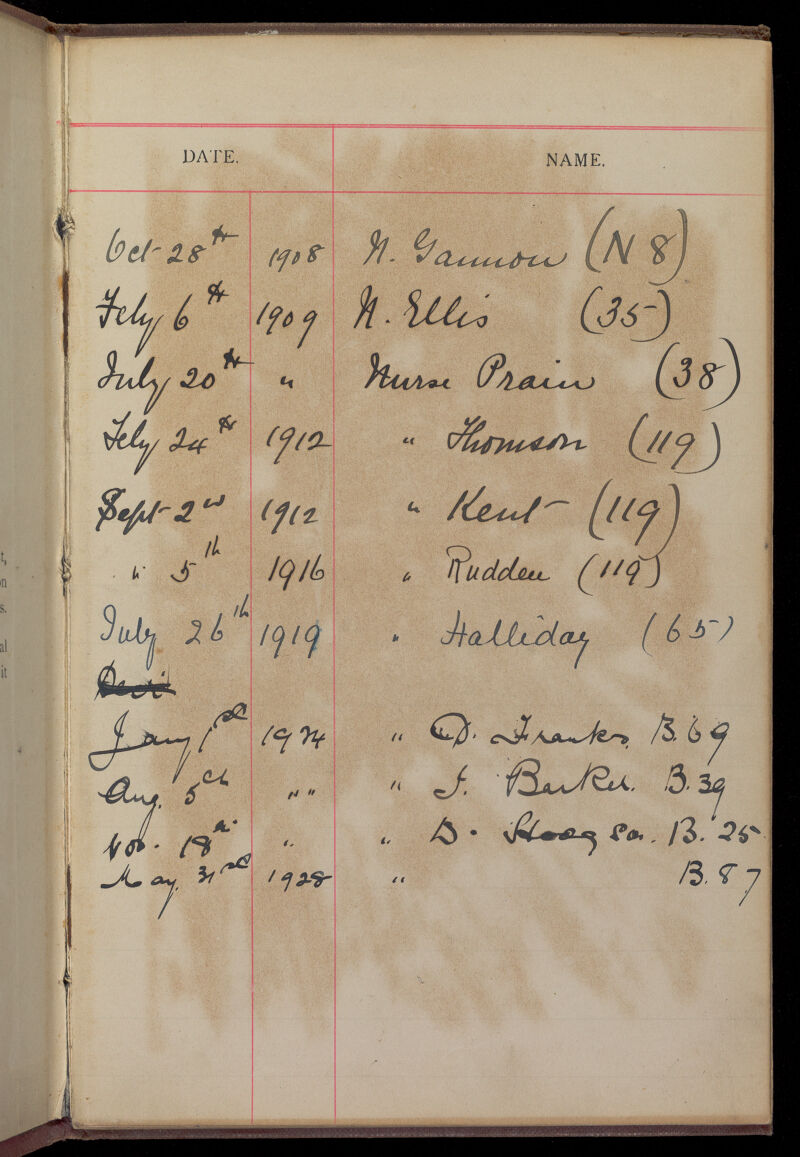 DATE. NAME.
Oct 28th 1908 N. Gannon (N 8)
Feby 6th 1909 N. Ellis (35)
July 20th " Nurse Prain (38)
Feby 24th 1912 " Thomson (119)
Sept 2nd 1912 " Kent (119)
" 5th 1916 " Rudden (119)
July 26th 1919 " Halliday (65)
Jany 1st 1924 " D. Franks. B. 69
Aug. 5th " " " J. Barker. B. 39
Nov. 18th " " D. B. 25
May. 31st 1928 " B. 87
t,
on
s.
al
it